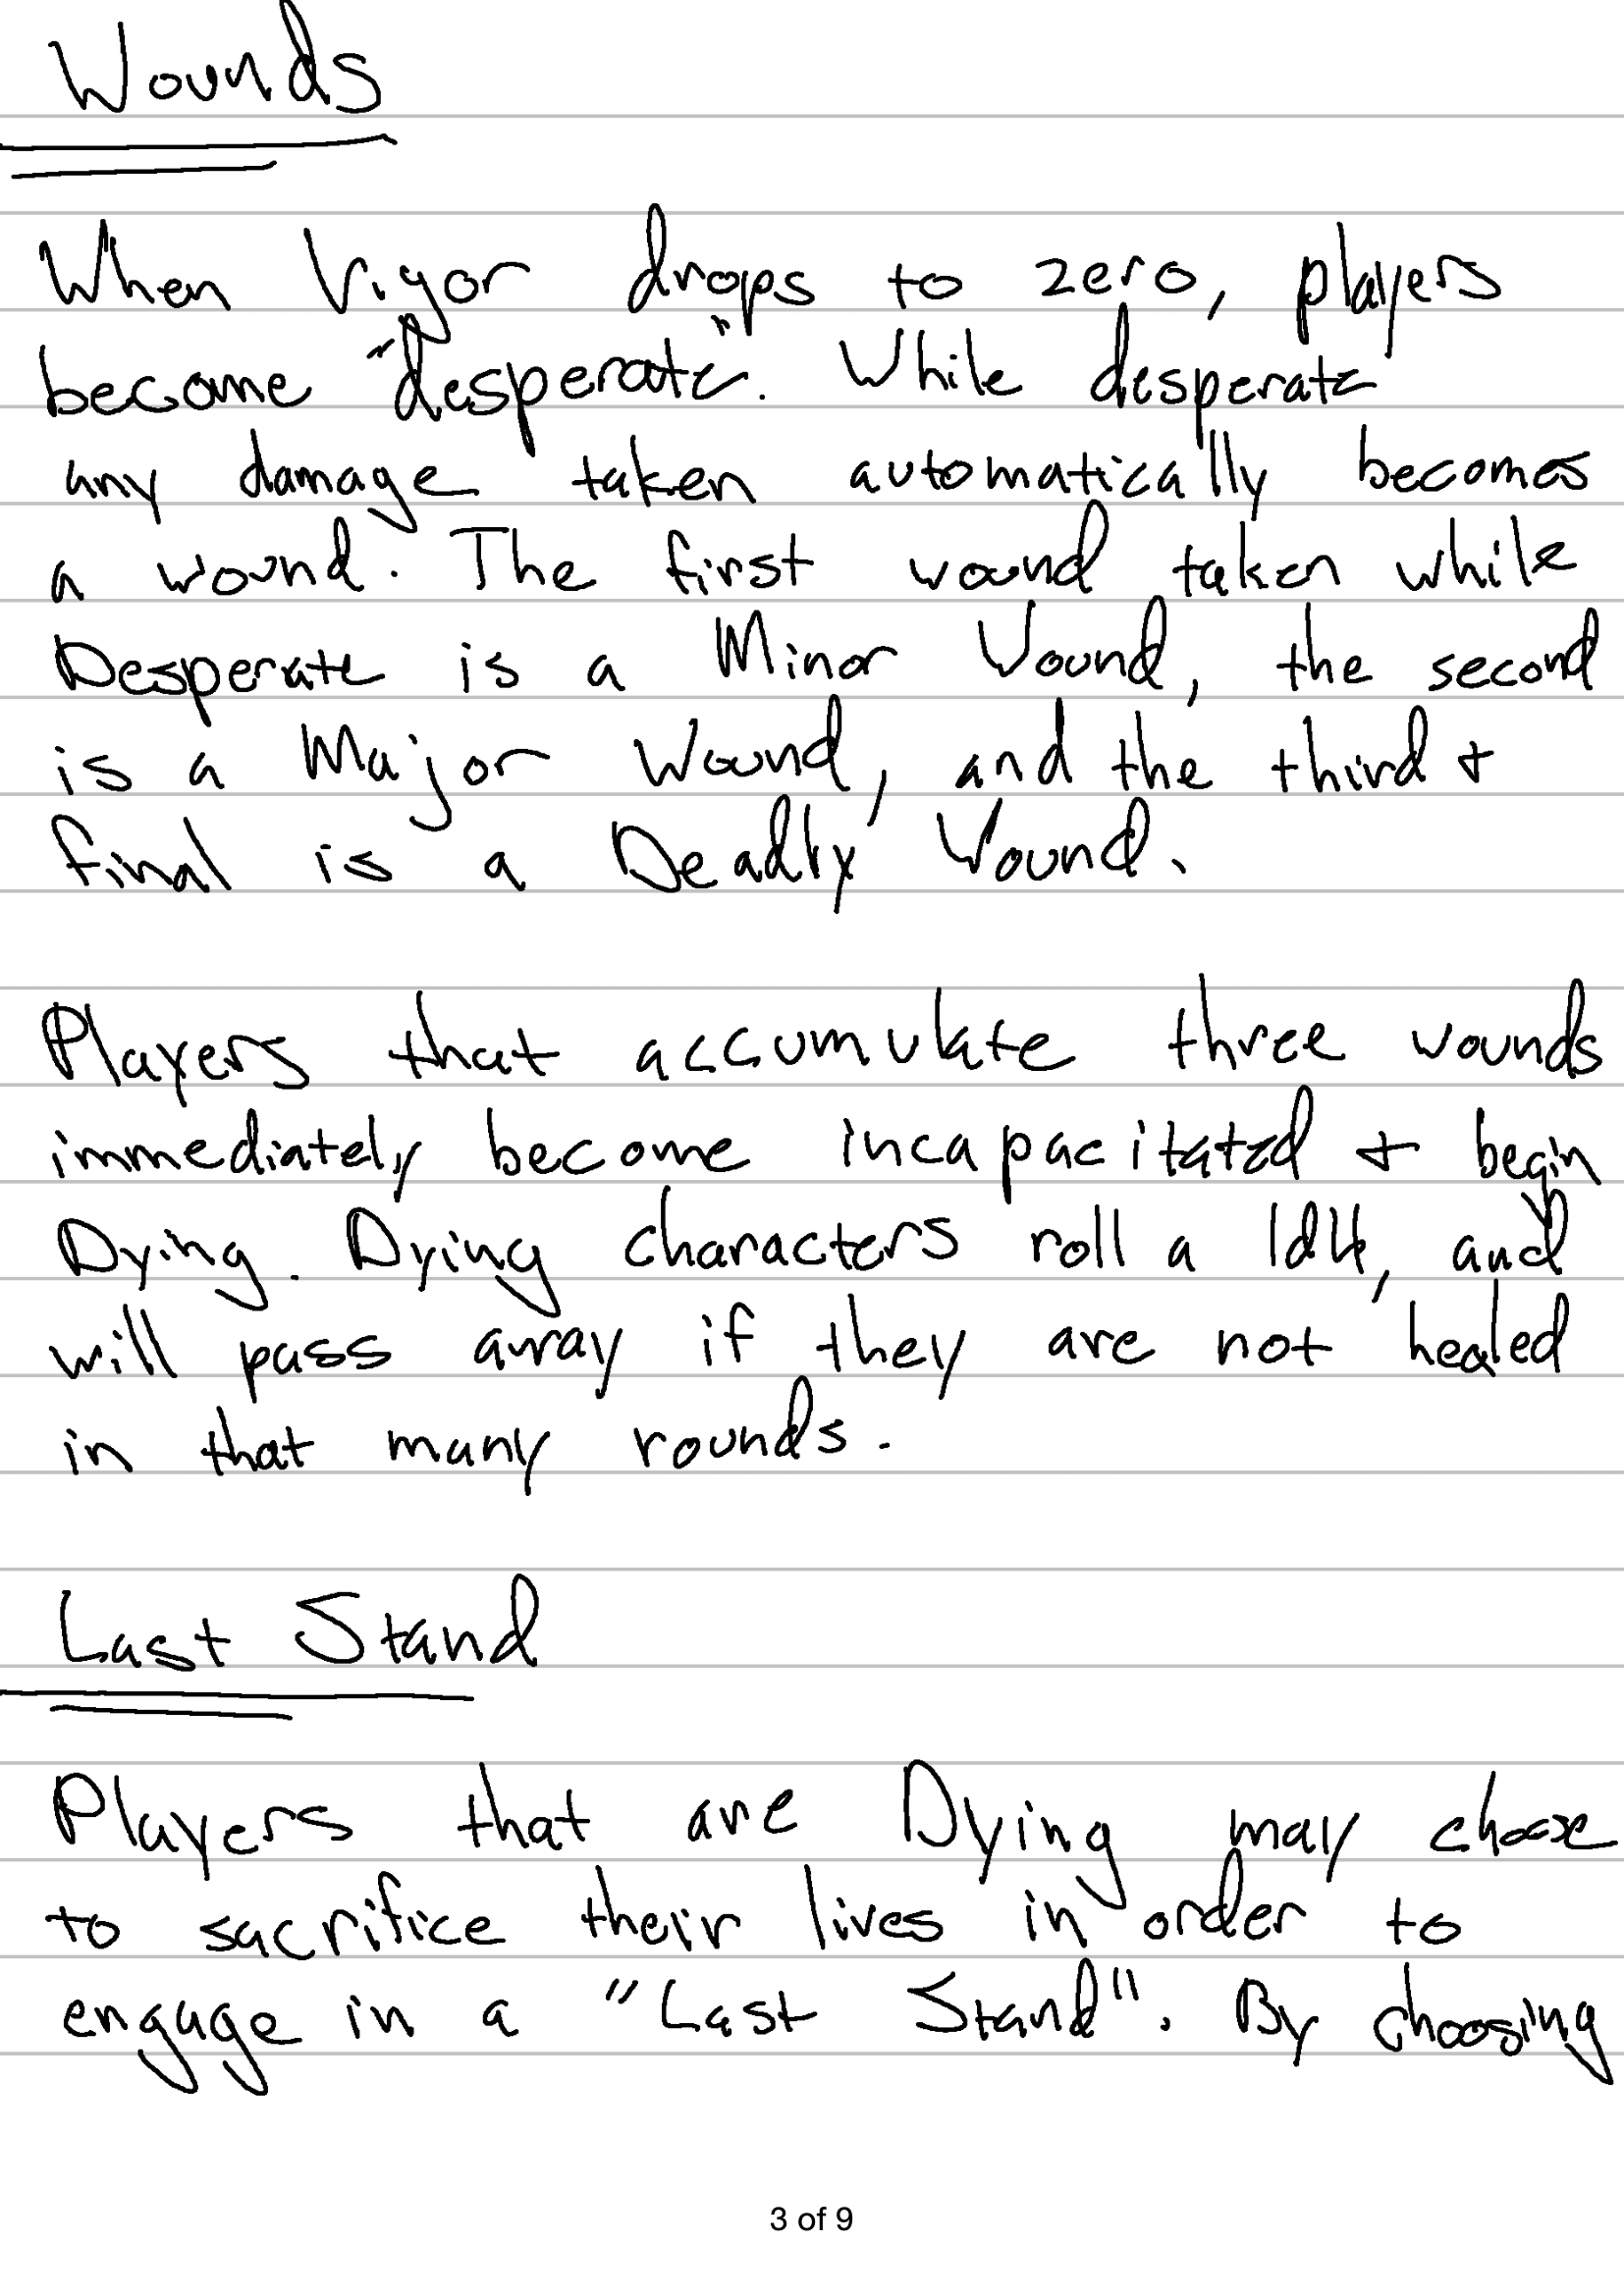 Wounds
When Vigor drops to zero, players
become "desperate". While desperate
any damage taken automatically becomes
a wound. The first wound taken while
Desperate is a Minor Wound, the second
is a Major Wound, and the third +
final is a Deadly Wound.
Players that accumulate three wounds
immediately become incapacitated + begin
Dying. Dying characters roll a 1d4, and
will pass away if they are not healed
in that many rounds.
Last Stand
Players that are Dying may choose
to sacrifice their lives in order to
engage in a "Last Stand". By choosing
3 of 9